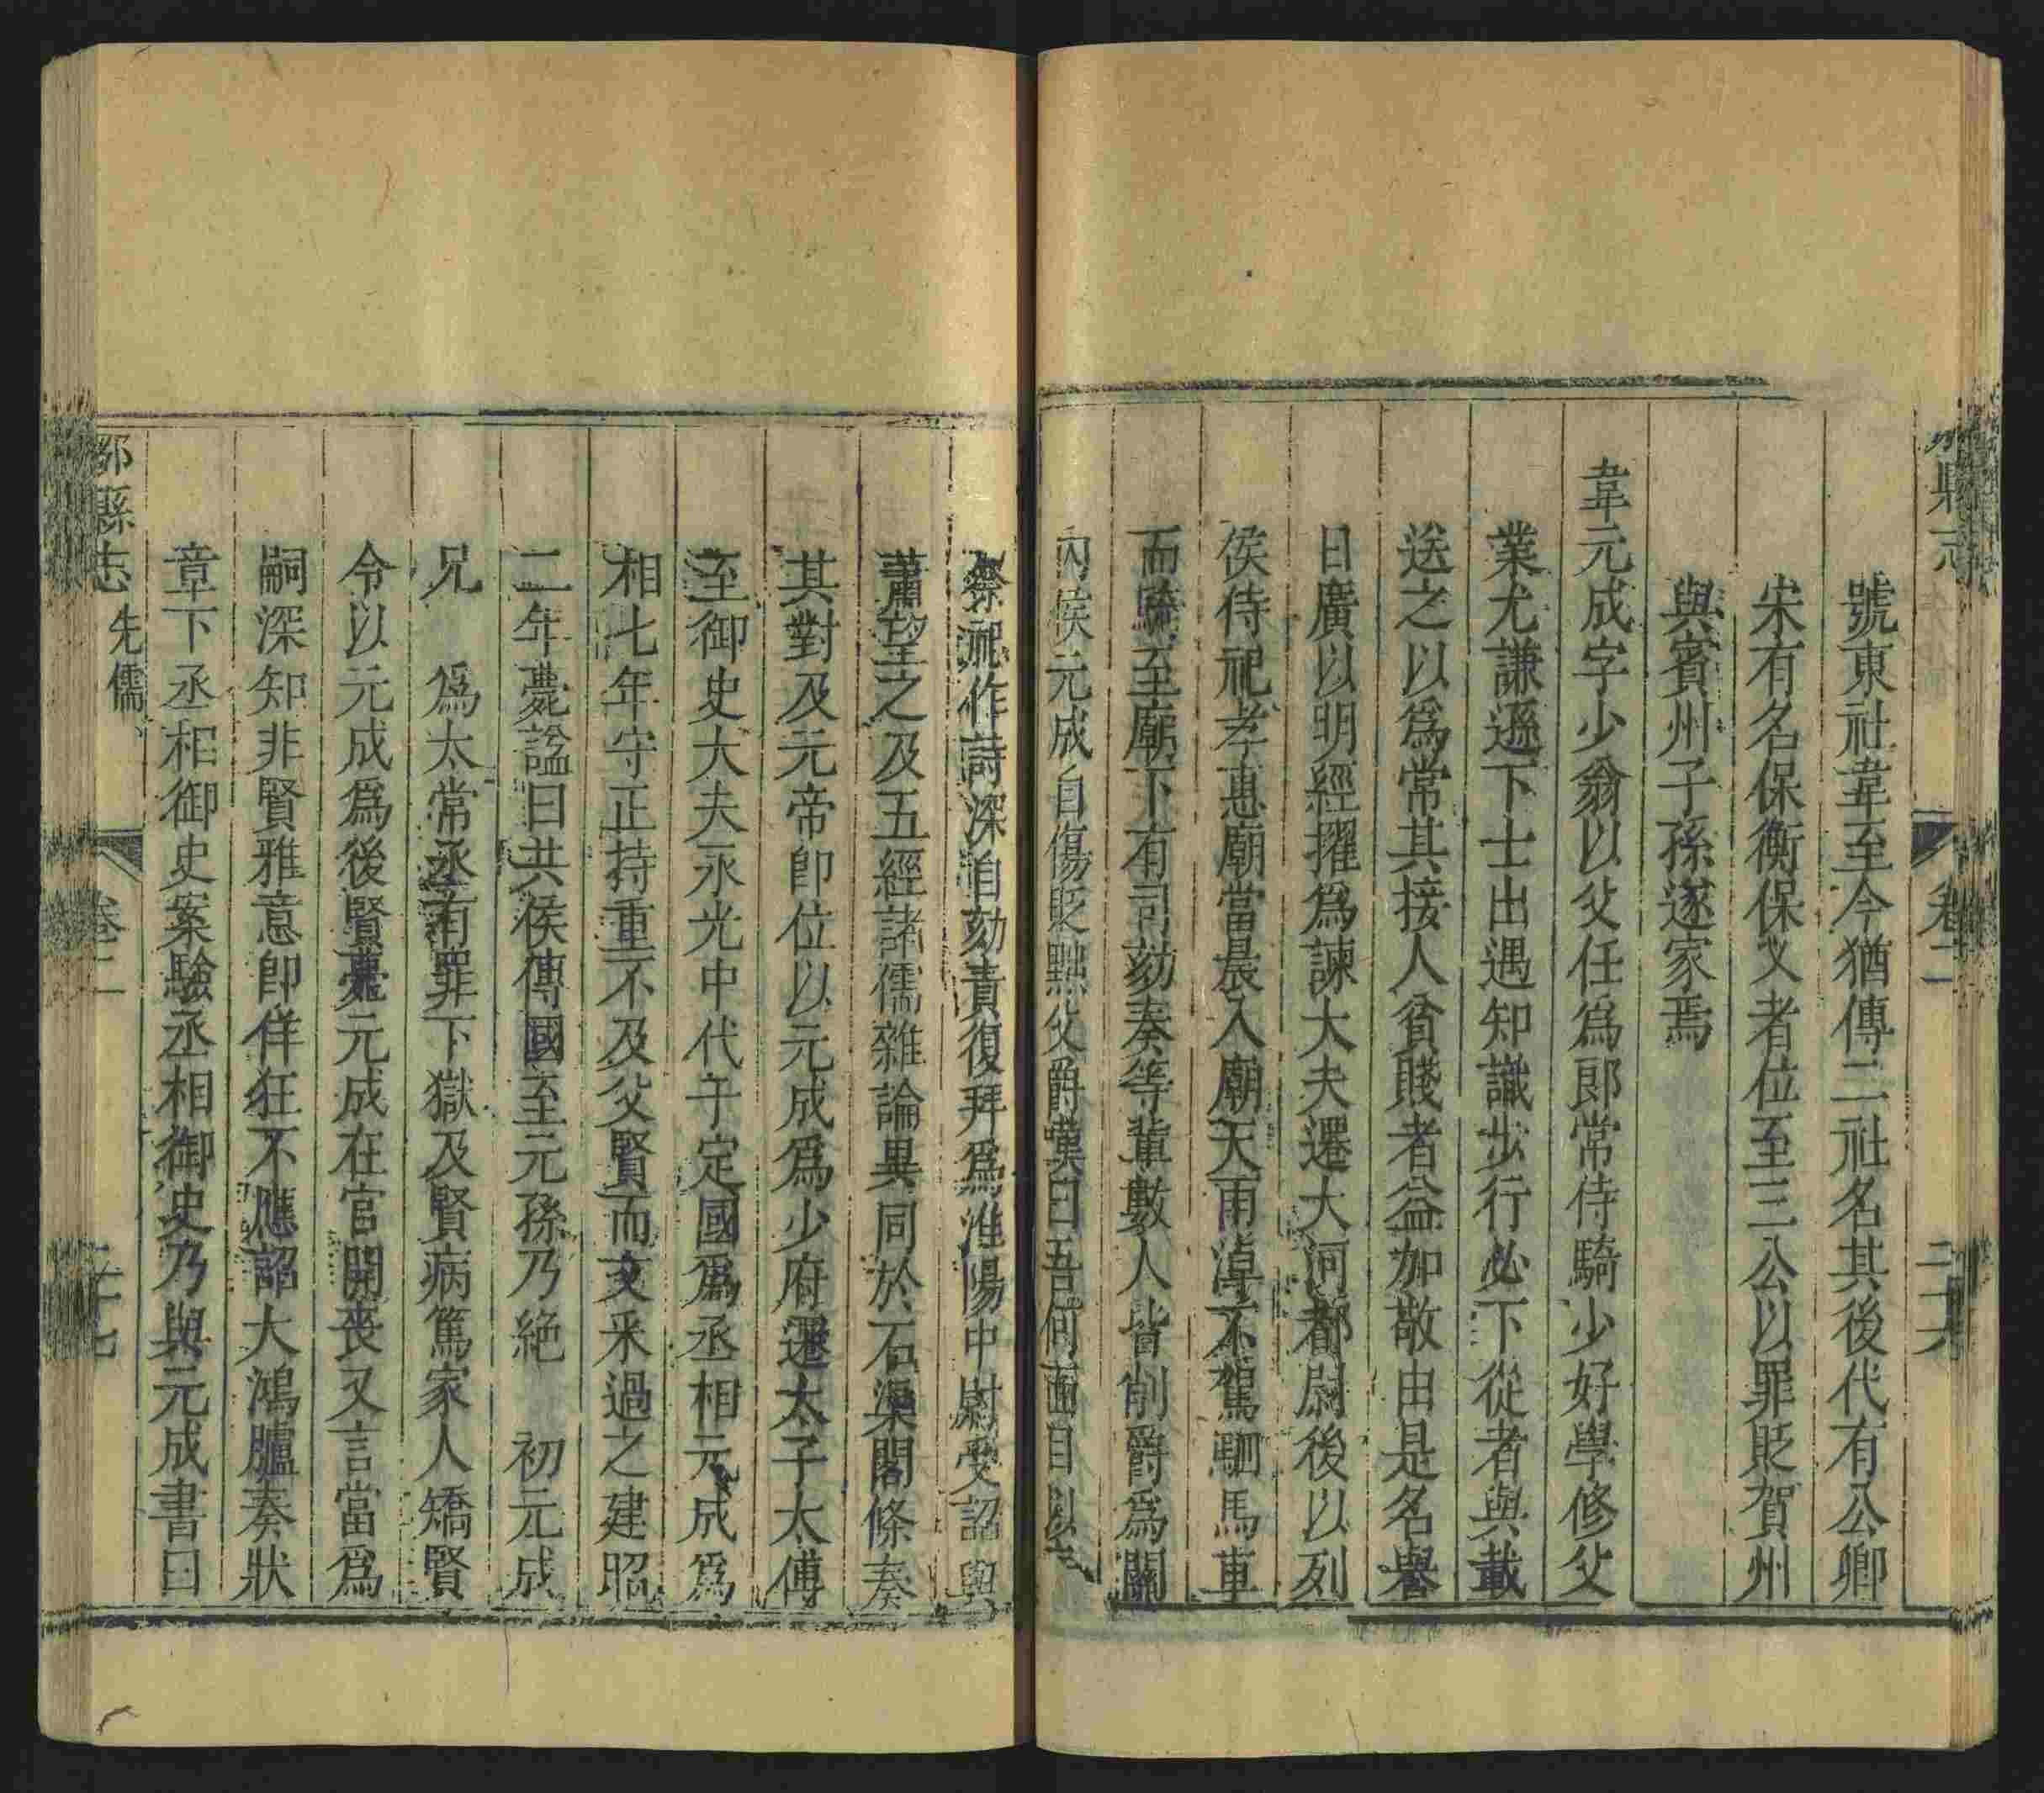 縣志 卷二 二十六
號東社韋至今猶傳二社名其後代有公卿
宋有名保衡保乂者位至三公以罪貶賀州
與賓州子孫遂家焉
韋元成字少翁以父任爲郎常侍騎少好學修父
業尤謙遜下士出遇知識步行必下從者與載
送之以爲常其接人貧賤者益加敬由是名譽
日廣以明經擢爲諫大夫遷大河都尉後以列
侯侍祀孝惠廟當晨入廟天雨淖不駕駟馬車
而騎至廟下有司劾奏等輩數人皆削爵爲關
內侯元成自傷貶黜父爵嘆曰吾何面目以
祭祀作詩深自劾責復拜爲淮陽中尉受詔與
蕭望之及五經諸儒雜論異同於石渠閣條奏
其對及元帝卽位以元成爲少府遷太子太傅
至御史大夫永光中代于定國爲丞相元成爲
相七年守正持重不及父賢而文采過之建昭
二年薨諡曰共侯傳國至元孫乃絕 初元成
兄 爲太常丞有罪下獄及賢病篤家人矯賢
令以元成爲後賢薨元成在官聞喪又言當爲
嗣深知非賢雅意卽佯狂不應詔大鴻臚奏狀
章下丞相御史案驗丞相御史乃與元成書曰
鄒縣志 先儒 卷二 二十七